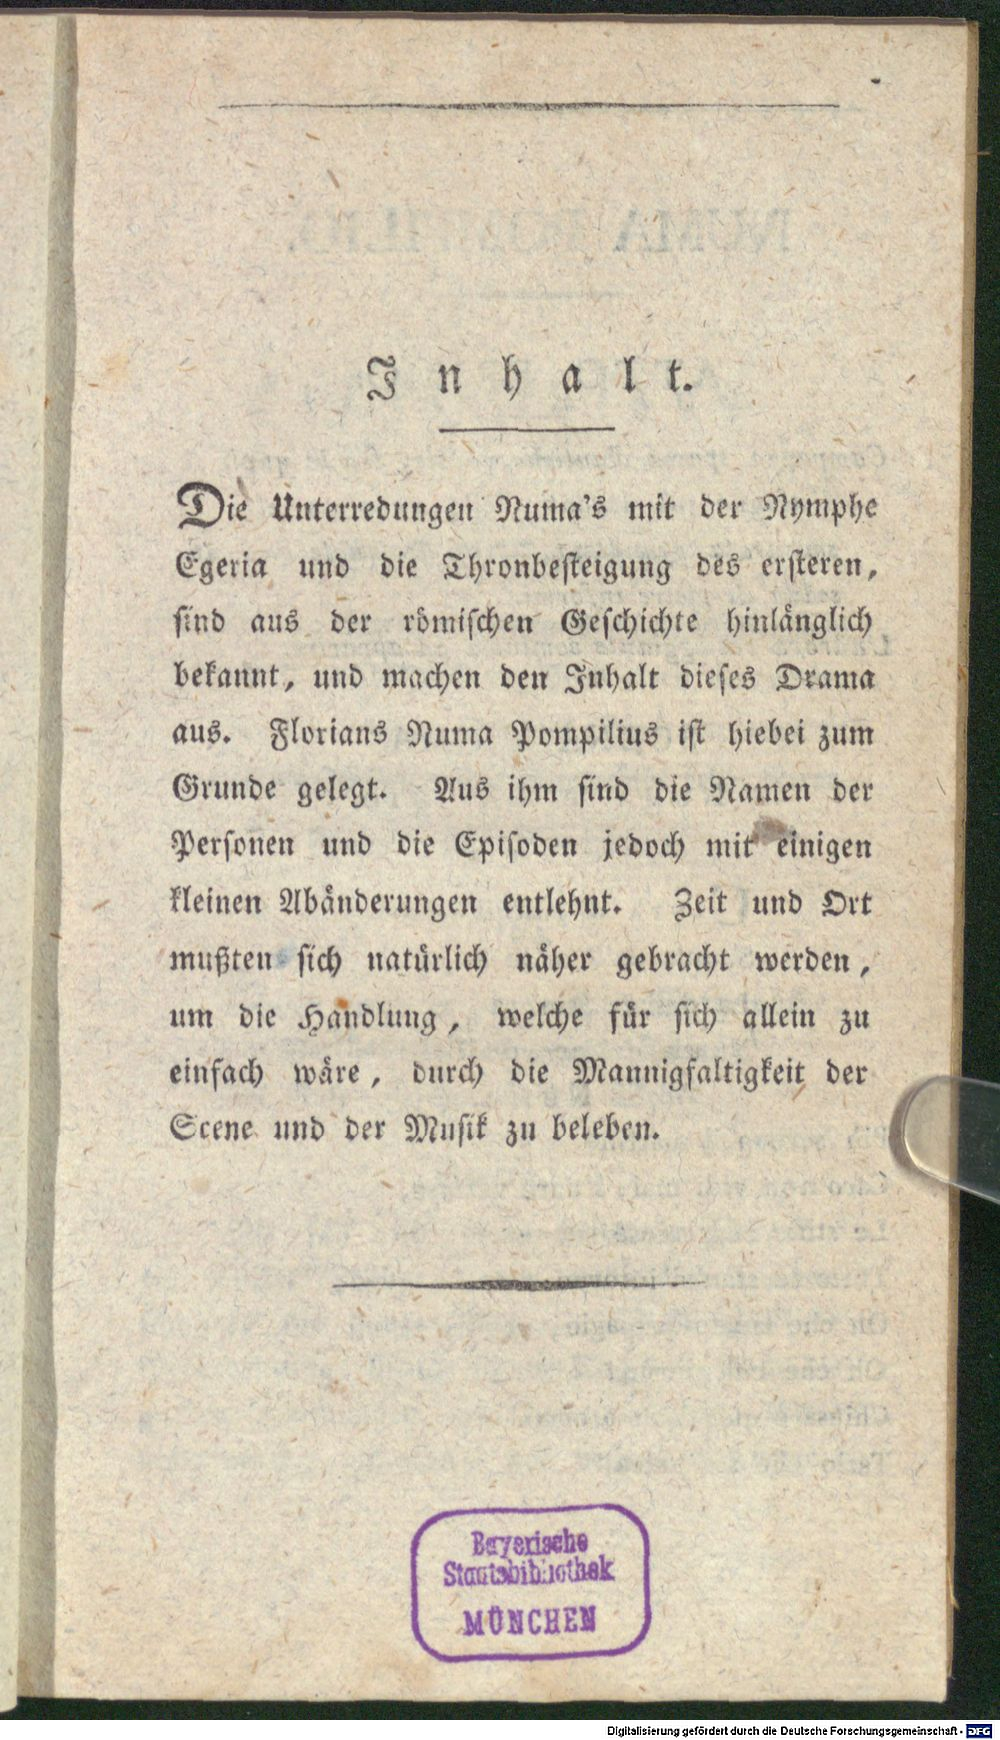 Inhalt.
Die Unterredungen Numa's mit der Nymphe
Egeria und die Thronbesteigung des ersteren,
sind aus der römischen Geschichte hinlänglich
bekannt, und machen den Inhalt dieses Drama
aus. Florians Numa Pompilius ist hiebei zum
Grunde gelegt. Aus ihm sind die Namen der
Personen und die Episoden jedoch mit einigen
kleinen Abänderungen entlehnt. Zeit und Ort
mußten sich natürlich näher gebracht werden,
um die Handlung, welche für sich allein zu
einfach wäre, durch die Mannigfaltigkeit der
Scene und der Musik zu beleben.
Bayerische
Staatsbibliothek
MÜNCHEN
Digitalisierung gefördert durch die Deutsche Forschungsgemeinschaft - DFG